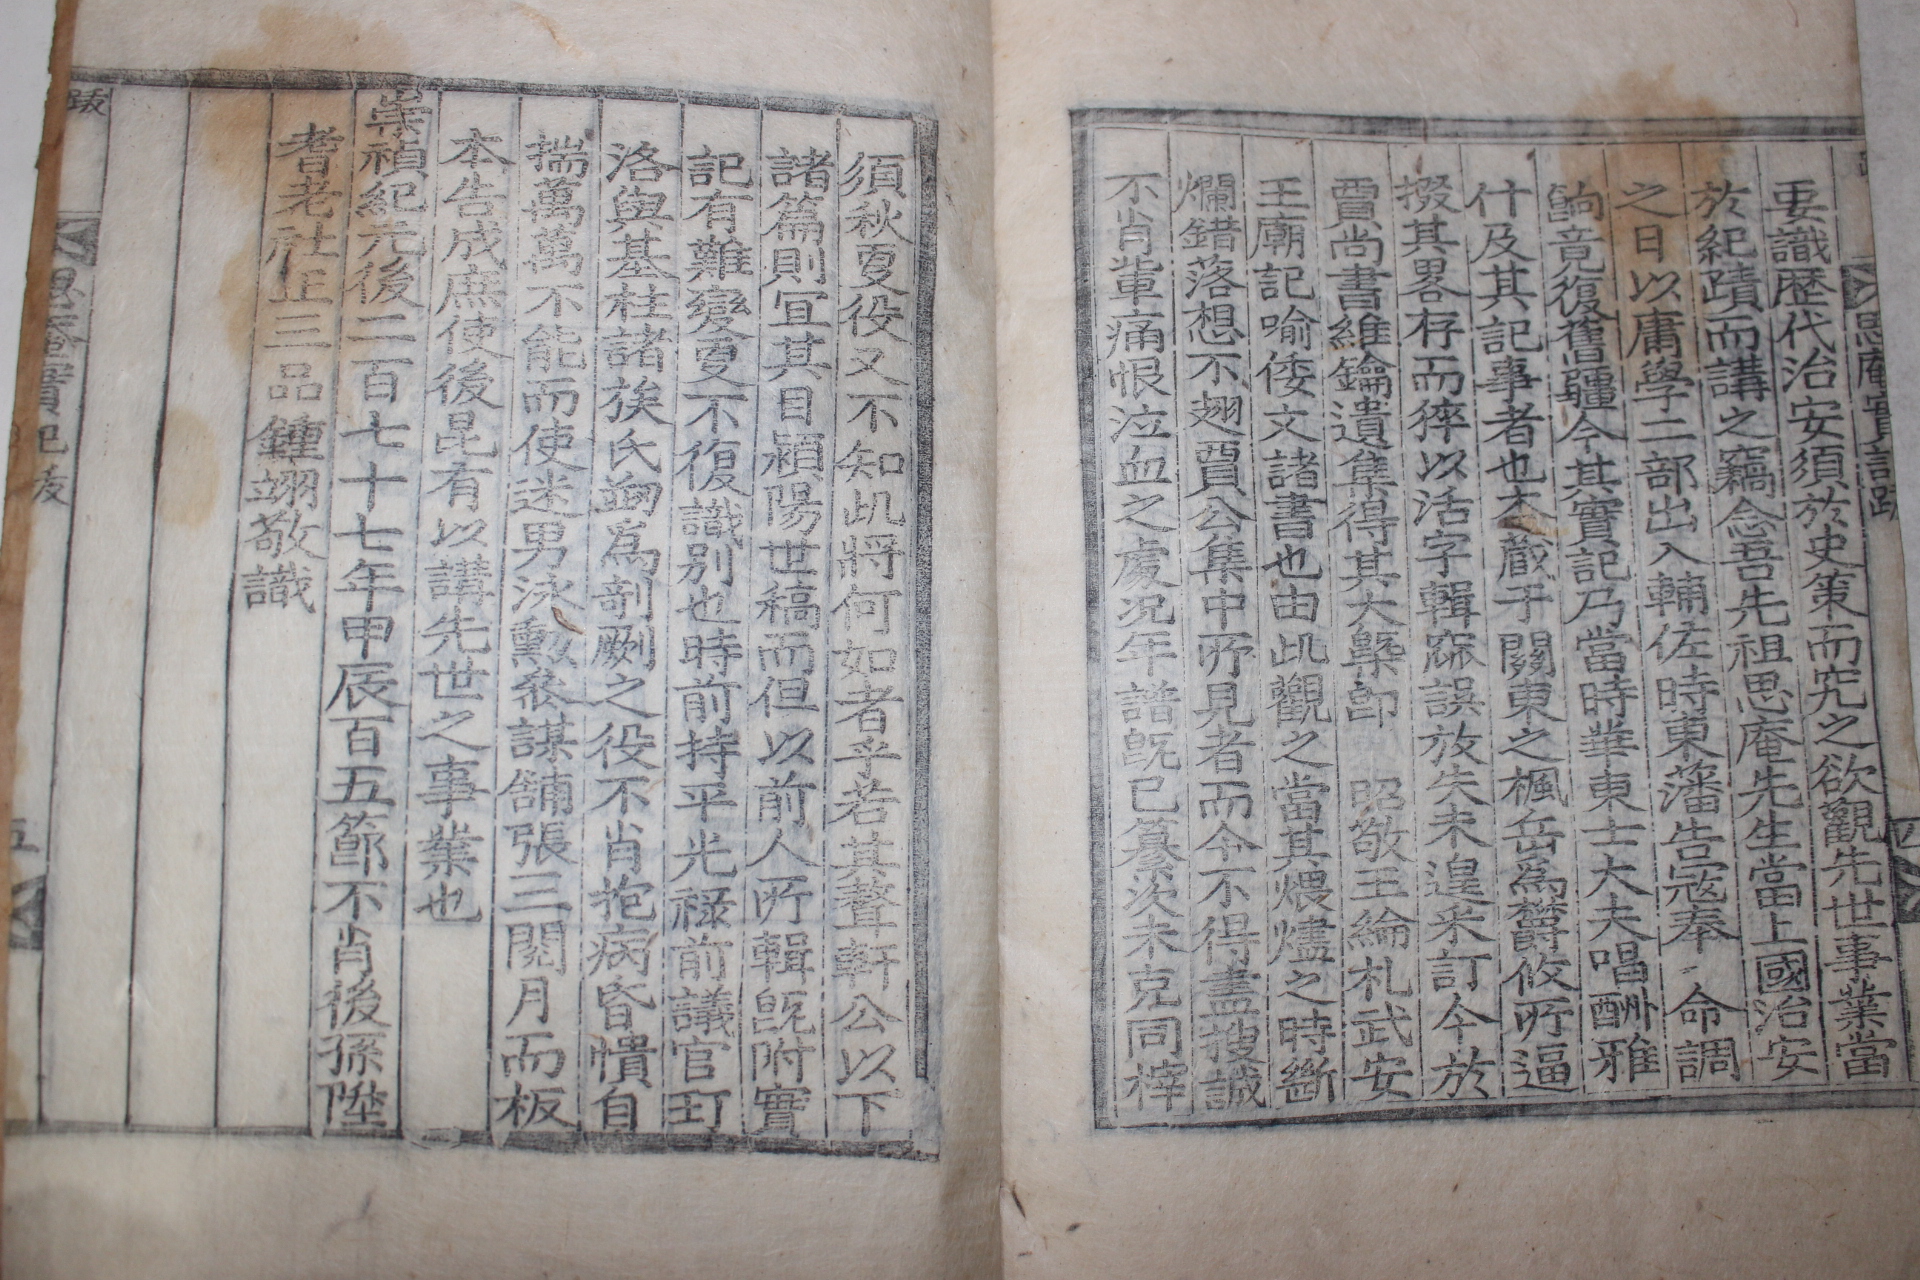 思庵實記跋
要識歷代治安須於史策而究之欲觀先世事業當
於紀蹟而講之竊念吾先祖思庵先生當上國治安
之日以庸學二部出入輔佐時東藩告寇奉 命調
餉竟復舊疆今其實記乃當時華東士大夫唱酬雅
什及其記事者也本藏于關東之楓岳爲欝攸所逼
掇其畧存而猝以活字輯窾誤放失未遑釆訂今於
賈尚書維鑰遺集得其大槩卽 昭敬王綸札武安
王廟記喻倭文諸書也由此觀之當其煨燼之時斷
爛錯落想不翅賈公集中所見者而今不得盡搜誠
不肖輩痛恨泣血之處况年譜旣已纂次未克同梓
須秋夏役又不知此將何如者乎若其聱軒公以下
諸篇則宜其目潁陽世稿而但以前人所輯旣附實
記有難變更不復識别也時前持平光祿前議官玎
洛與基柱諸族氏夠爲剞劂之役不肖抱病昏憒自
揣萬萬不能而使迷男泳勳叅謀舖張三閱月而板
本告成庶使後昆有以講先世之事業也
崇禎紀元後二百七十七年甲辰百五節不肖後孫陞
耆老社正三品鍾翊敬識
跋
思庵實記
五